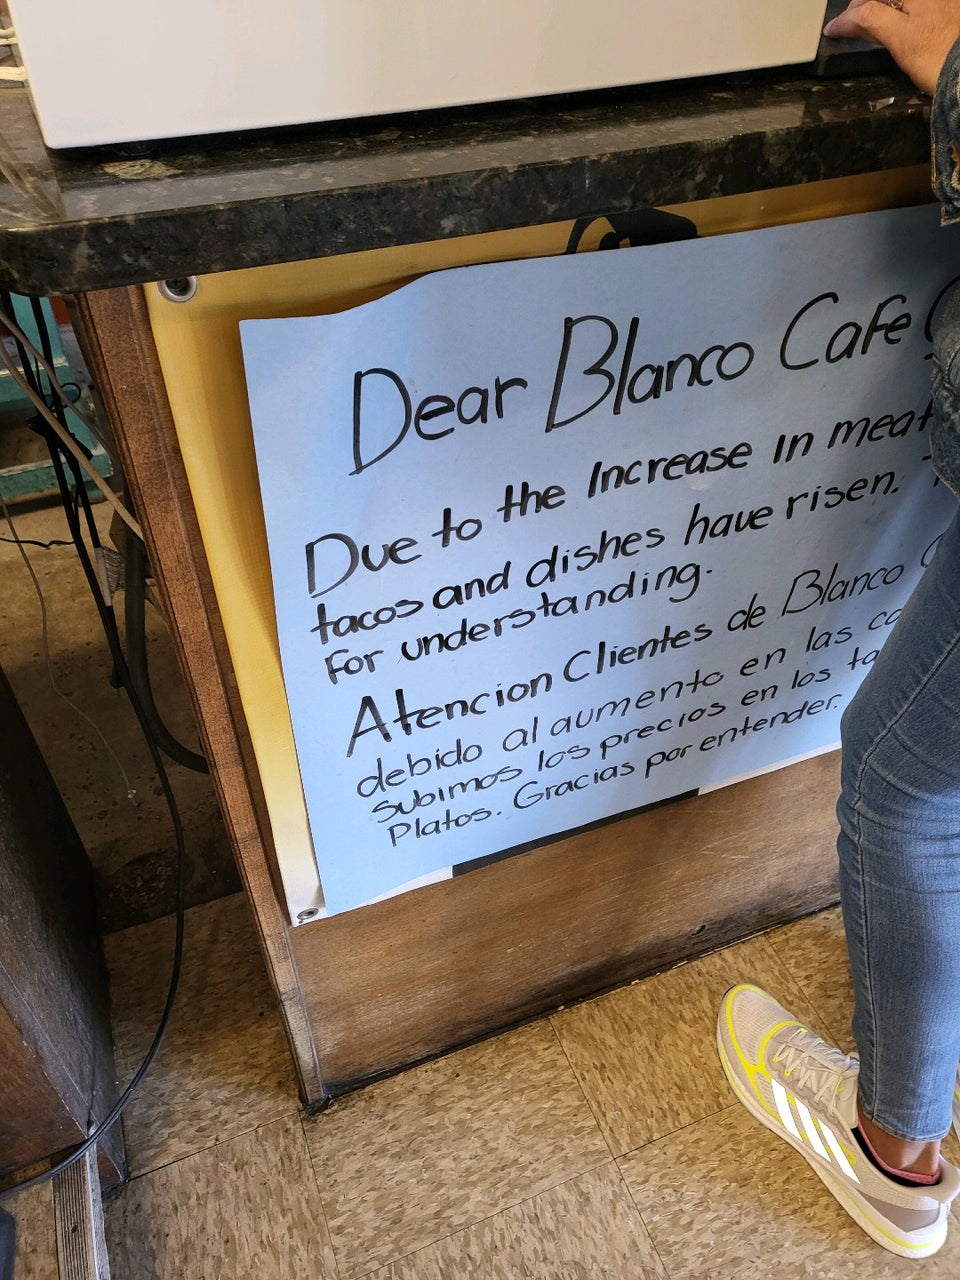 Dear Blanco Cafe
Due to the Increase In meat
tacos and dishes have risen.
For understanding.
Atencion Clientes de Blanco
debido al aumento en las
subimos los precios en los
Platos. Gracias por entender.